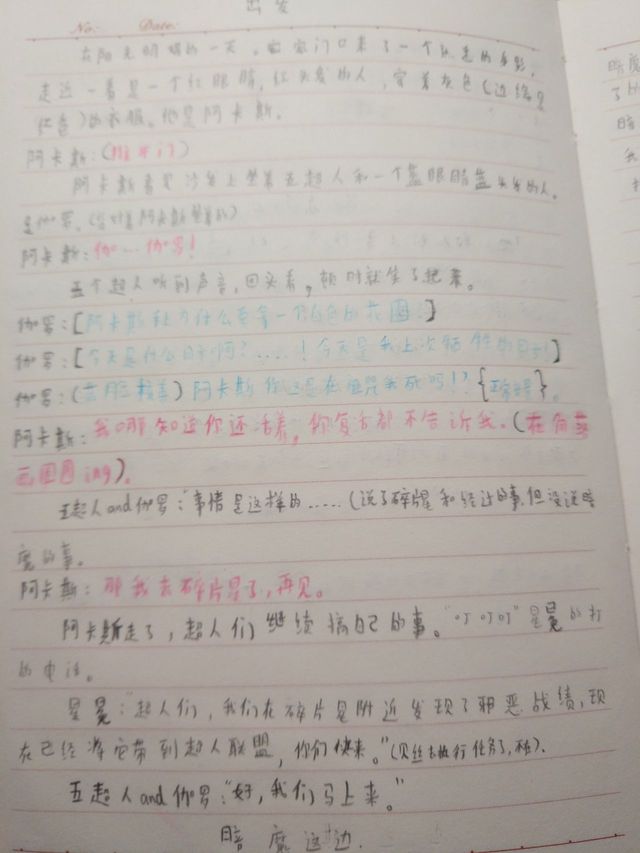 出发
No. Date.
在阳光明媚的一天,家门口来了一个红色的身影,
走近一看是一个红眼睛,红头发的人,穿着灰色(边缘是
红色)的衣服。他是阿卡斯。
阿卡斯:(推开门)
阿卡斯看见沙发上坐着五超人和一个蓝眼睛蓝头发的人。
是伽罗。(背对着阿卡斯坐着的)
阿卡斯:伽…伽罗!
五个超人听到声音,回头看,顿时就笑了起来。
伽罗:[阿卡斯 为什么要拿一个白色的花圈?]
伽罗:[今天是什么日子啊?……!今天是我上次牺牲的日子!]
伽罗:(黑脸)阿卡斯你这是在咒我死吗!?{}。
阿卡斯:我哪知道你还活着,你复活都不告诉我。(在角落
画圈圈ing)。
五超人and伽罗:“事情是这样的……(说了碎片星和经过的事.但没说暗
魔的事。
阿卡斯:那我去碎片星了,再见。
阿卡斯走了,超人们继续搞自己的事。“叮叮叮”星星的打
的电话。
星星:“超人们,我们在碎片星附近发现了邪恶战绩,现
在已经将它带到超人联盟,你们快来。”(贝丝去执行任务了,不在).
五超人and伽罗:“好,我们马上来。”
暗魔这边.
暗魔
了的
暗